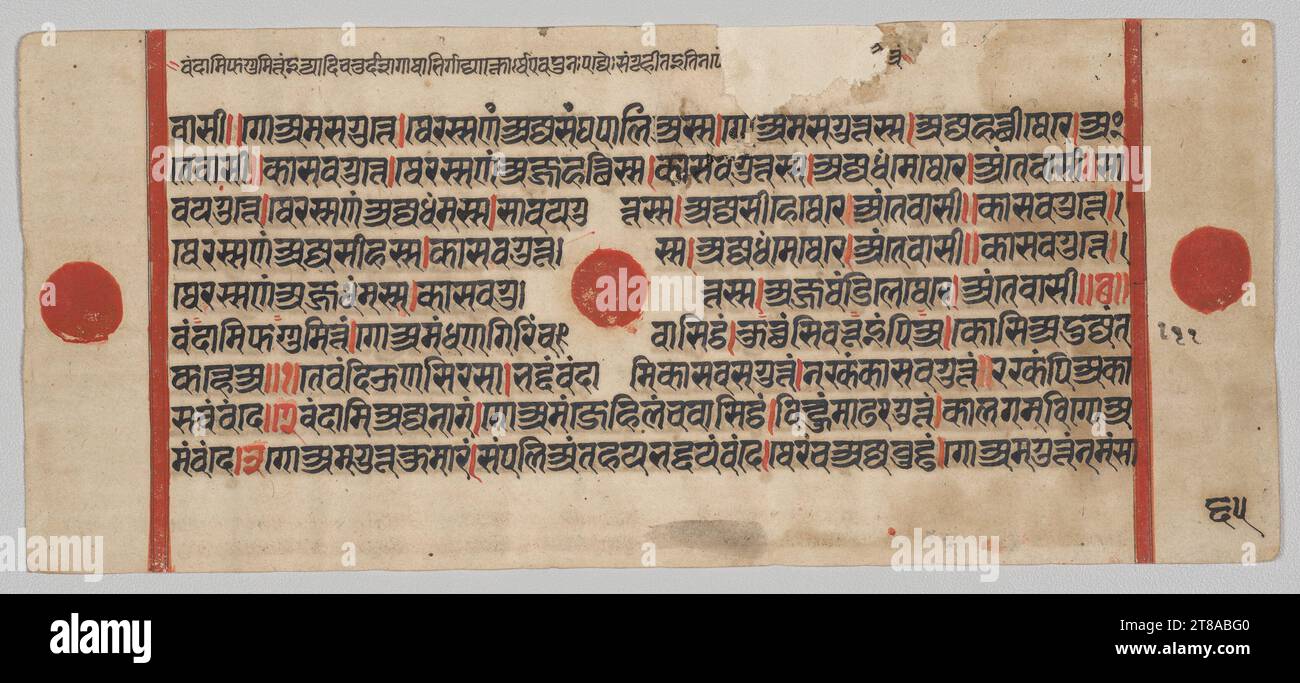 वंदामिफग्गुमित्तंइत्यादिचतुर्दशगाथाभि
वासी॥गोअमसगुत्ते।थेरस्सणंअज्जसंघपालिअस्स।गोअमसगुत्तस्स।अज्जहत्थीथेरे।अं
तेवासी॥कासवगुत्ते।थेरस्सणंअज्जहत्थिस्स।कासवगुत्तस्स।अज्जधंमेथेरे।अंतेवासी॥सा
वयगुत्ते।थेरस्सणंअज्जधंमस्स।सावयगु त्तस्स।अज्जसीहेथेरे।अंतेवासी॥कासवगुत्ते।
थेरस्सणंअज्जसीहस्स।कासवगुत्त। स्स।अज्जधंमेथेरे।अंतेवासी॥कासवगुत्ते।
थेरस्सणंअज्जधंमस्स।कासवगु। त्तस्स।अज्जसंडिल्लेथेरे।अंतेवासी॥छ॥
वंदामिफग्गुमित्तं।गोअमंधणगिरिंच वासिट्ठं।कुच्छंसिवभूइंपिअ।कोसिअदुज्जंत
१११
कण्हेअ॥१॥तेवंदिऊणसिरसा।भद्दंवंदा मिकासवसगुत्तं।नक्खंकासवगुत्तं॥रक्खंपिअका
सवंवंदे॥२वंदामिअज्जनागं।गोअमंजेहिलंचवासिट्ठं।विण्हुंमाढरगुत्तं।कालगमविगोअ
मंवंदे।३गोअमगुत्तकुमारं।संपलिअंतहयभद्दयंवंदे।थेरंचअज्जवुड्ढं।गोअमगुत्तंनमंसा
६५
alamy
Image ID: 2T8ABG0
www.alamy.com